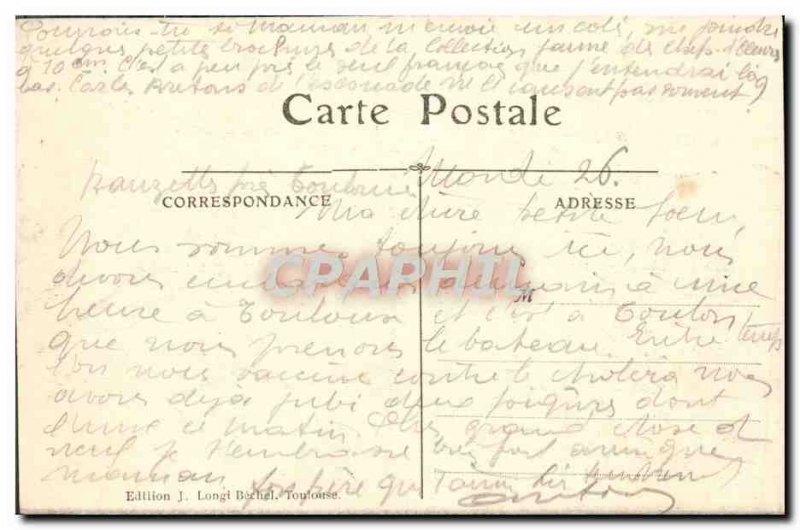 Pourrais-tu si maman m'envoie un colis, me joindre
quelques petites brochures de la Collection jaune des chefs d'œuvres
à 10 cm. C'est à peu près le seul français que j'entendrai là
bas. Car les Bretons de l'escouade ne le causent pas souvent
Carte Postale
près Toulouse Mardi 26.
CORRESPONDANCE
ADRESSE
Ma chère petite sœur,
Nous sommes toujours ici, nous
devons demain à une
CPARHIL
M
heure à Toulouse et c'est à Toulon
que nous prenons le bateau. Entre temps
l'on nous vaccine contre le choléra nous
avons déjà subi deux piqûres dont
l'une ce matin. Pas grand chose de
neuf je t'embrasse bien fort ainsi que
maman
ton père qui t'aime bien tendrement
Edition J. Longi Béchel. Toulouse.